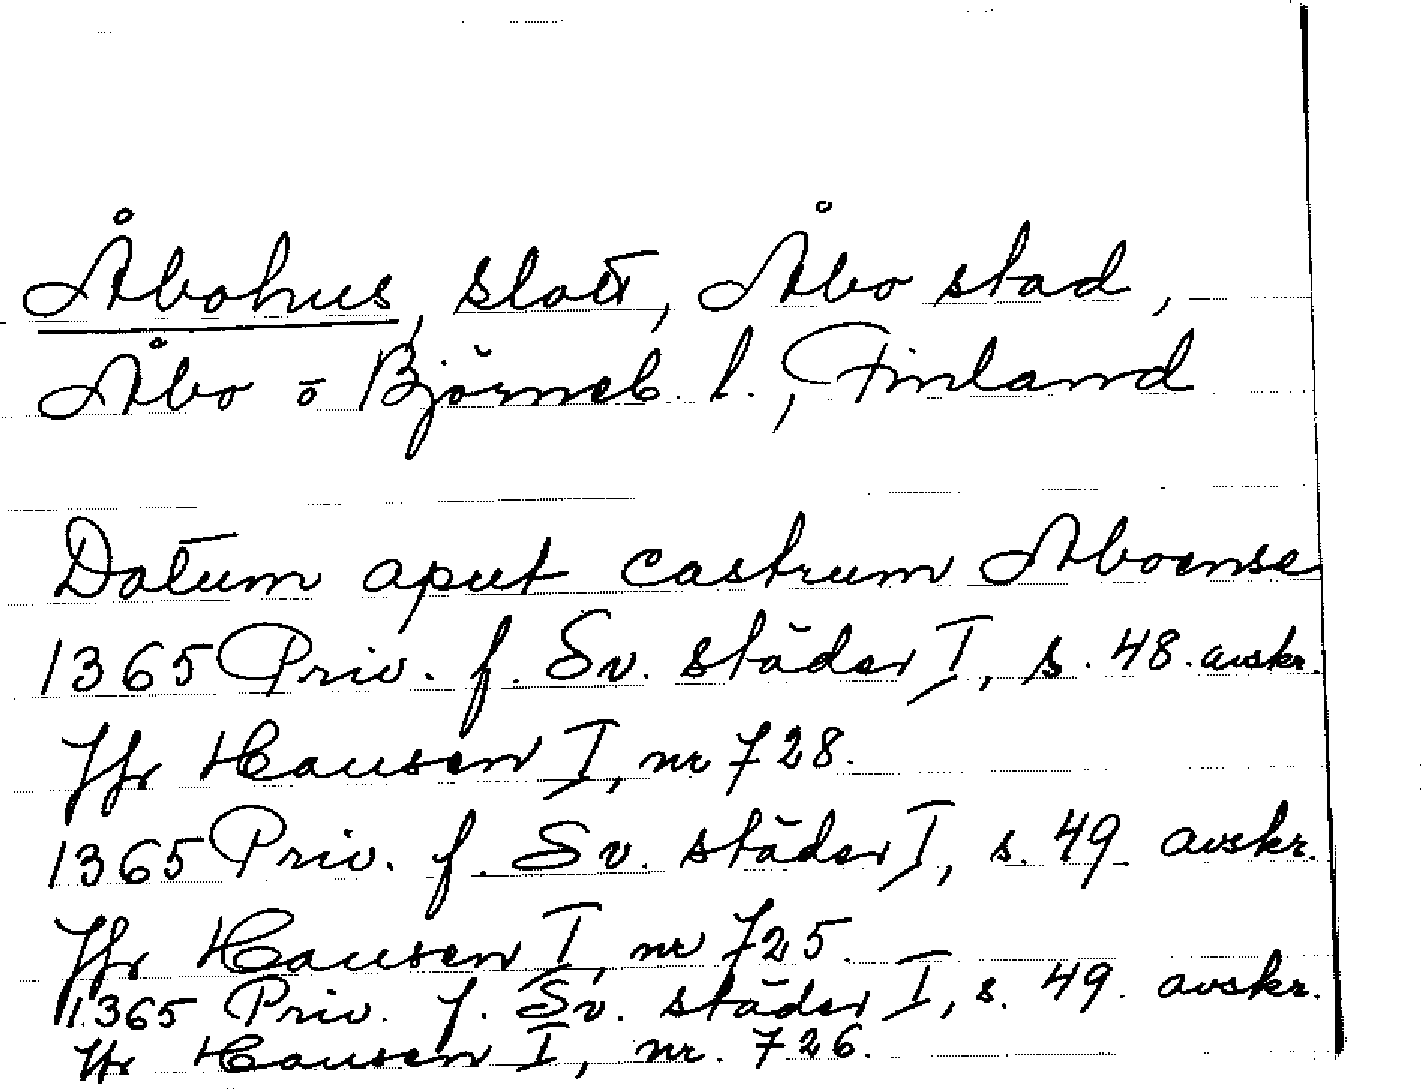 Åbohus, slott, Åbo stad,
Åbo o Björneb. l., Finland
Datum aput castrum Aboense
1365 Priv. f. Sv. städer I, s. 48. avskr.
Jfr Hausen I, nr 728.
1365 Priv. f. Sv. städer I, s. 49 avskr.
Jfr Hausen I, nr 725.
1365 Priv. f. Sv. städer I, s. 49. avskr.
Jfr Hausen I, nr. 726.